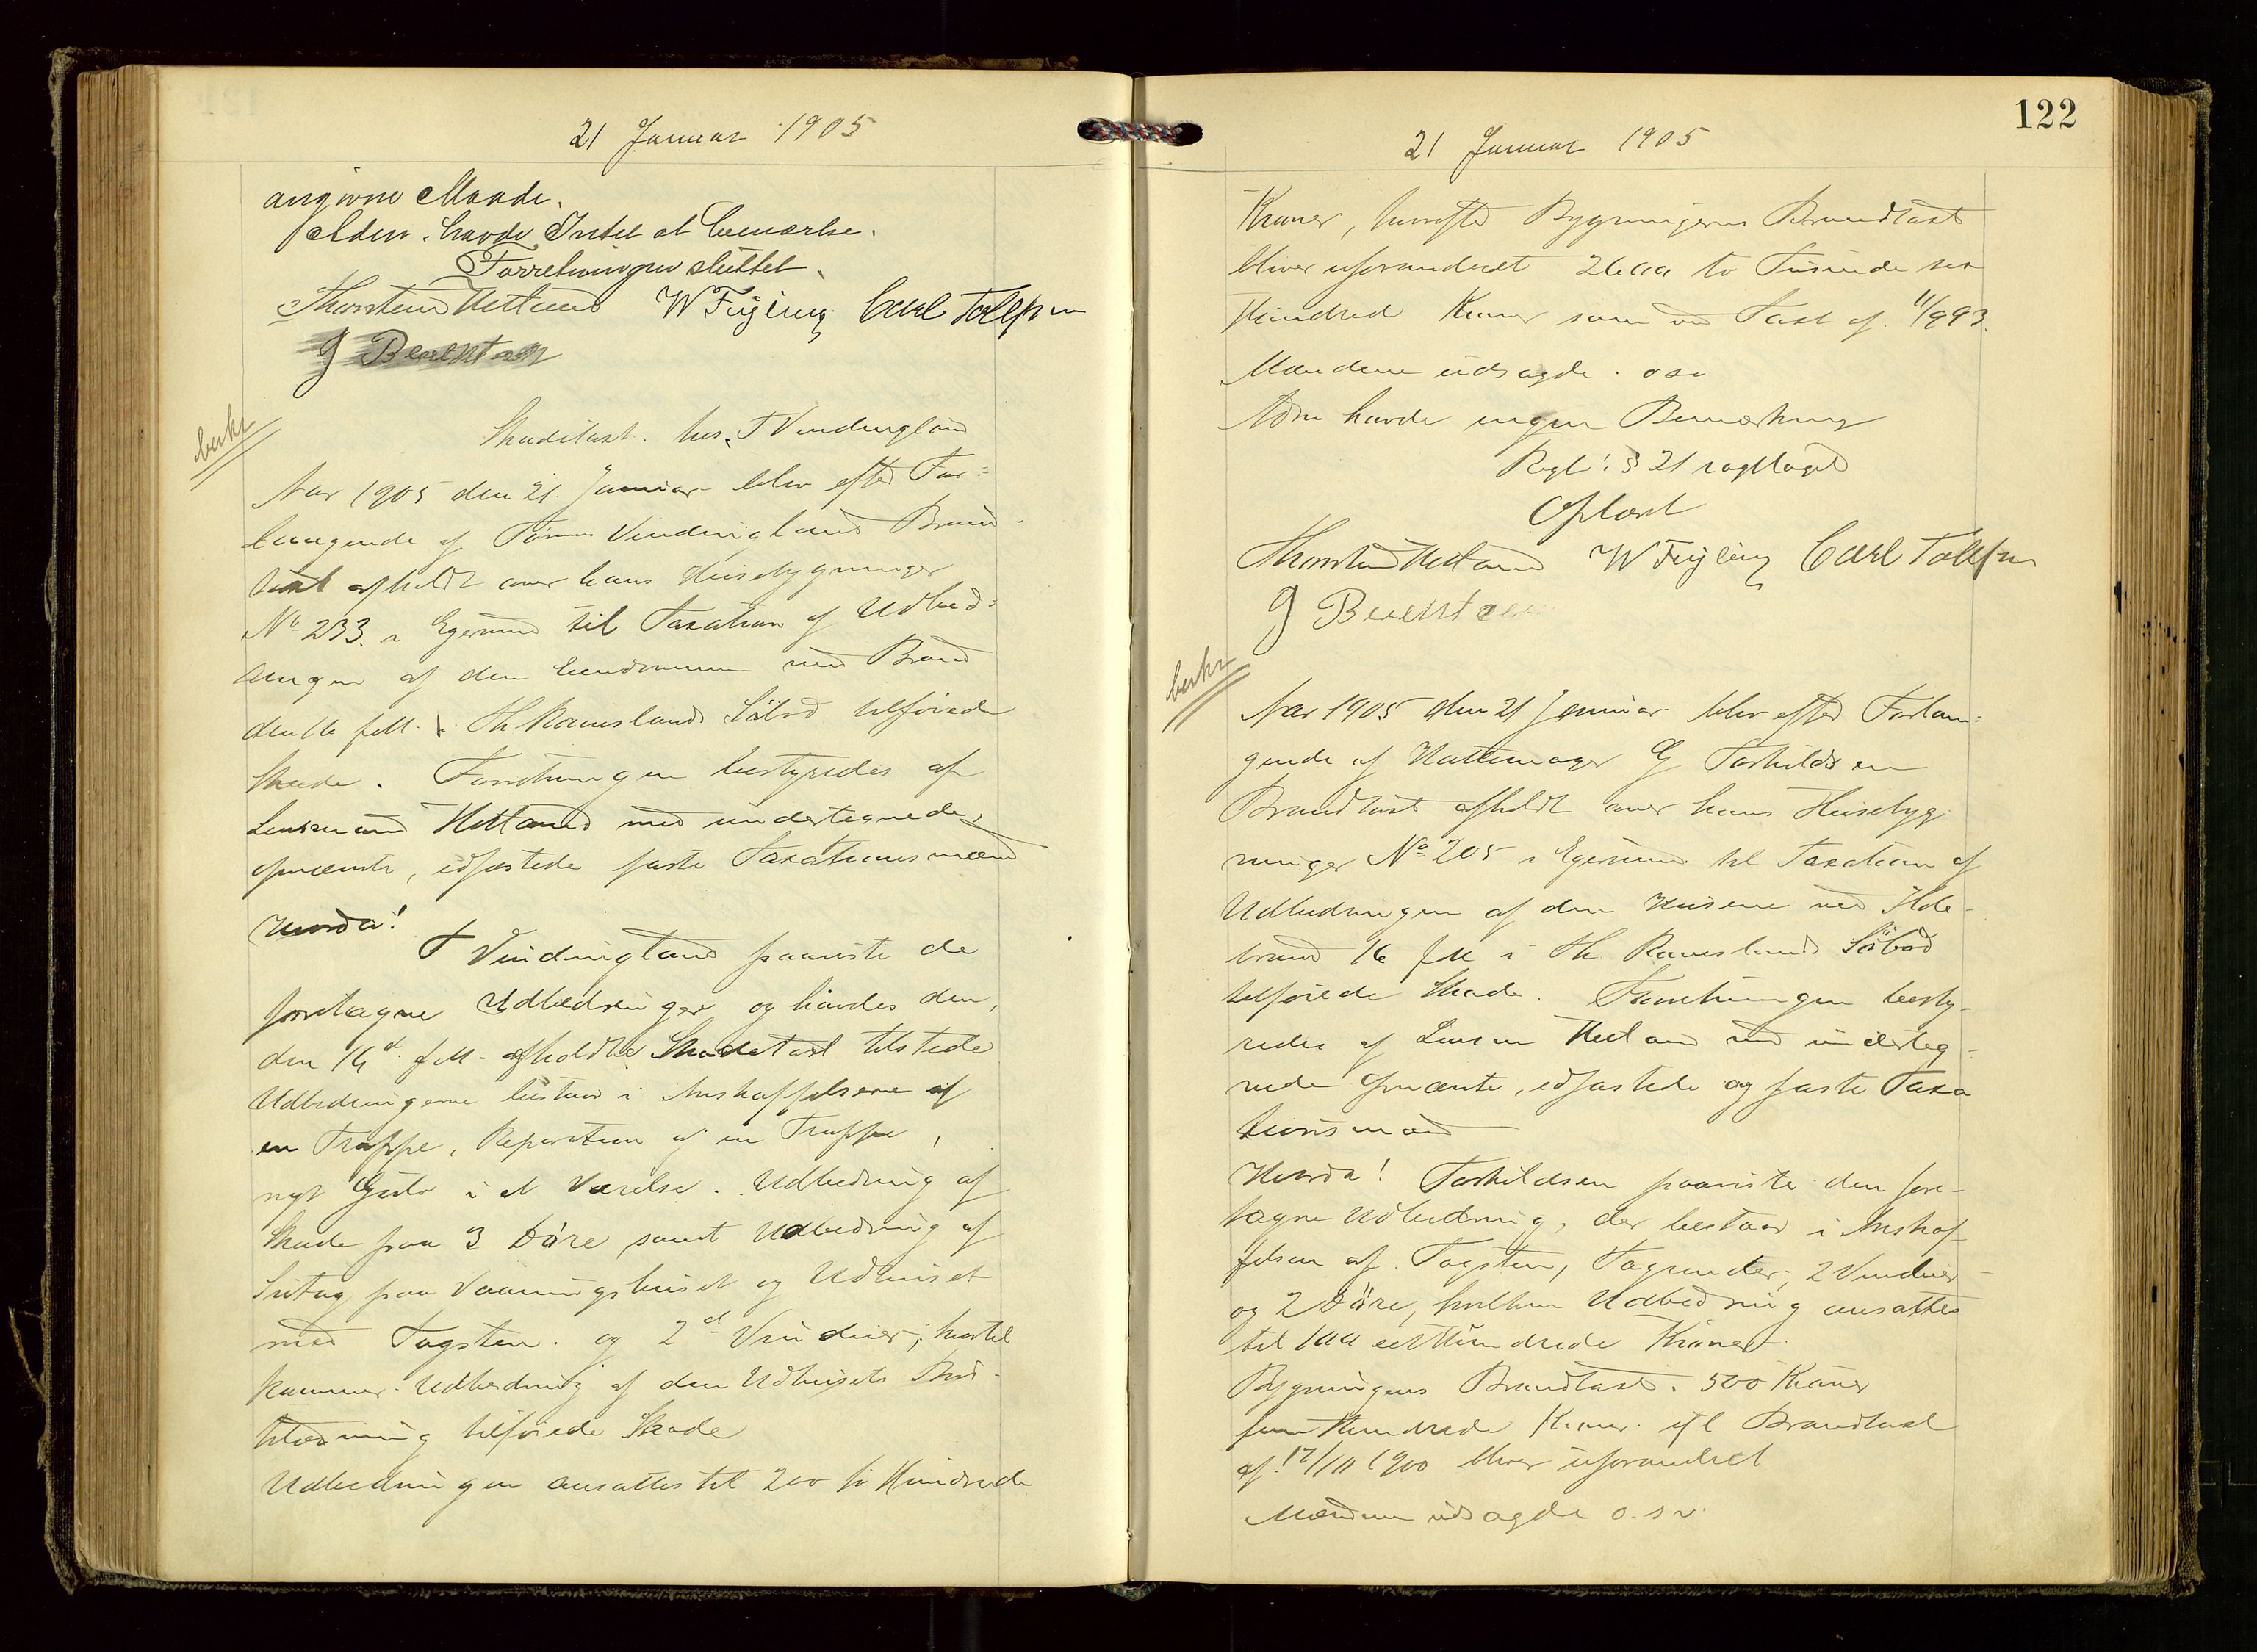 21 Januar 1905
angivne Maade.
Adm. havde Intet at bemærke.
Forretningen sluttet.
Thorstein Hetland W Feyling Carl Tollefsen
G Berentsen
berkr
Skadetaxt hos T Vindingland
Aar 1905 den 21 Januar blev efter For-
langende af Vindingland Brand-
taxt afholdt over hans Husebygninger
No 233 i Egersund til Taxation af Udbed-
ringen af den Eiendommen ved Brand
den 16 fM. i Th Ramslands Söbod tilföiede
Skade. Forretningen bestyredes af
Lensmand Hetland med undertegnede,
opnævnte, edfæstede faste Taxationsmænd
Hvorda!
T Vindingland paaviste de
foretagne Udbedringer og havdes den,
den 16d fM. afholdte Skadetaxt tilstede
Udbedringerne bestaar i Anskaffelsene af
en Trappe, Reparation af en Trappe,
nyt Gulv i et Værelse. Udbedring af
Skade paa 3 Döre samt Udbedring af
paa Vaaningshuset og Udhuset
med Tagsten. og 2d Vinduer; hvortil
kommer Udbedring af den Udhusets Bord-
klædning tilföiede Skade
Udbedringen ansattes til 200 to Hundrede
122
21 Januar 1905
Kroner, hvorefter Bygningernes Brandtaxt
bliver uforandret 2600 to Tusinde sex
Hundred Kroner som ved Taxt af 11/9 93.
Mændene udsagde. osv
Adm havde ingen Bemærkning
Regl: § 21 iagttaget
Oplæst
Thorstein Hetland W Feyling Carl Tollefsen
G Berentsen
berkr
Aar 1905 den 21 Januar blev efter Forlan-
gende af Hattemager G Torkildsen
Brandtaxt afholdt over hans Husebyg
ninger No 205 i Egersund til Taxation af
Udbedringen af den Husene ved Ilde-
brand 16 fM i Th Ramslands Söbod
tilföiede Skade. Forretningen besty-
redes af Lensm Hetland med underteg-
nede opnævnte, edfæstede og faste Taxa
tionsmænd
Hvorda! Torkildsen paaviste den fore-
tagne Udbedring, der bestaar i Anskaf
felsen af Tagsten, Tagrender, 2 Vinduer
og 2 Döre, hvilken Udbedring ansattes
til 100 eet Hundrede Kroner.
Bygningens Brandtaxt. 500 Kroner
fem Hundrede Kroner ifl Brandtaxt
af 17/10 1900 bliver uforandret
Mændene udsagde o. s v.